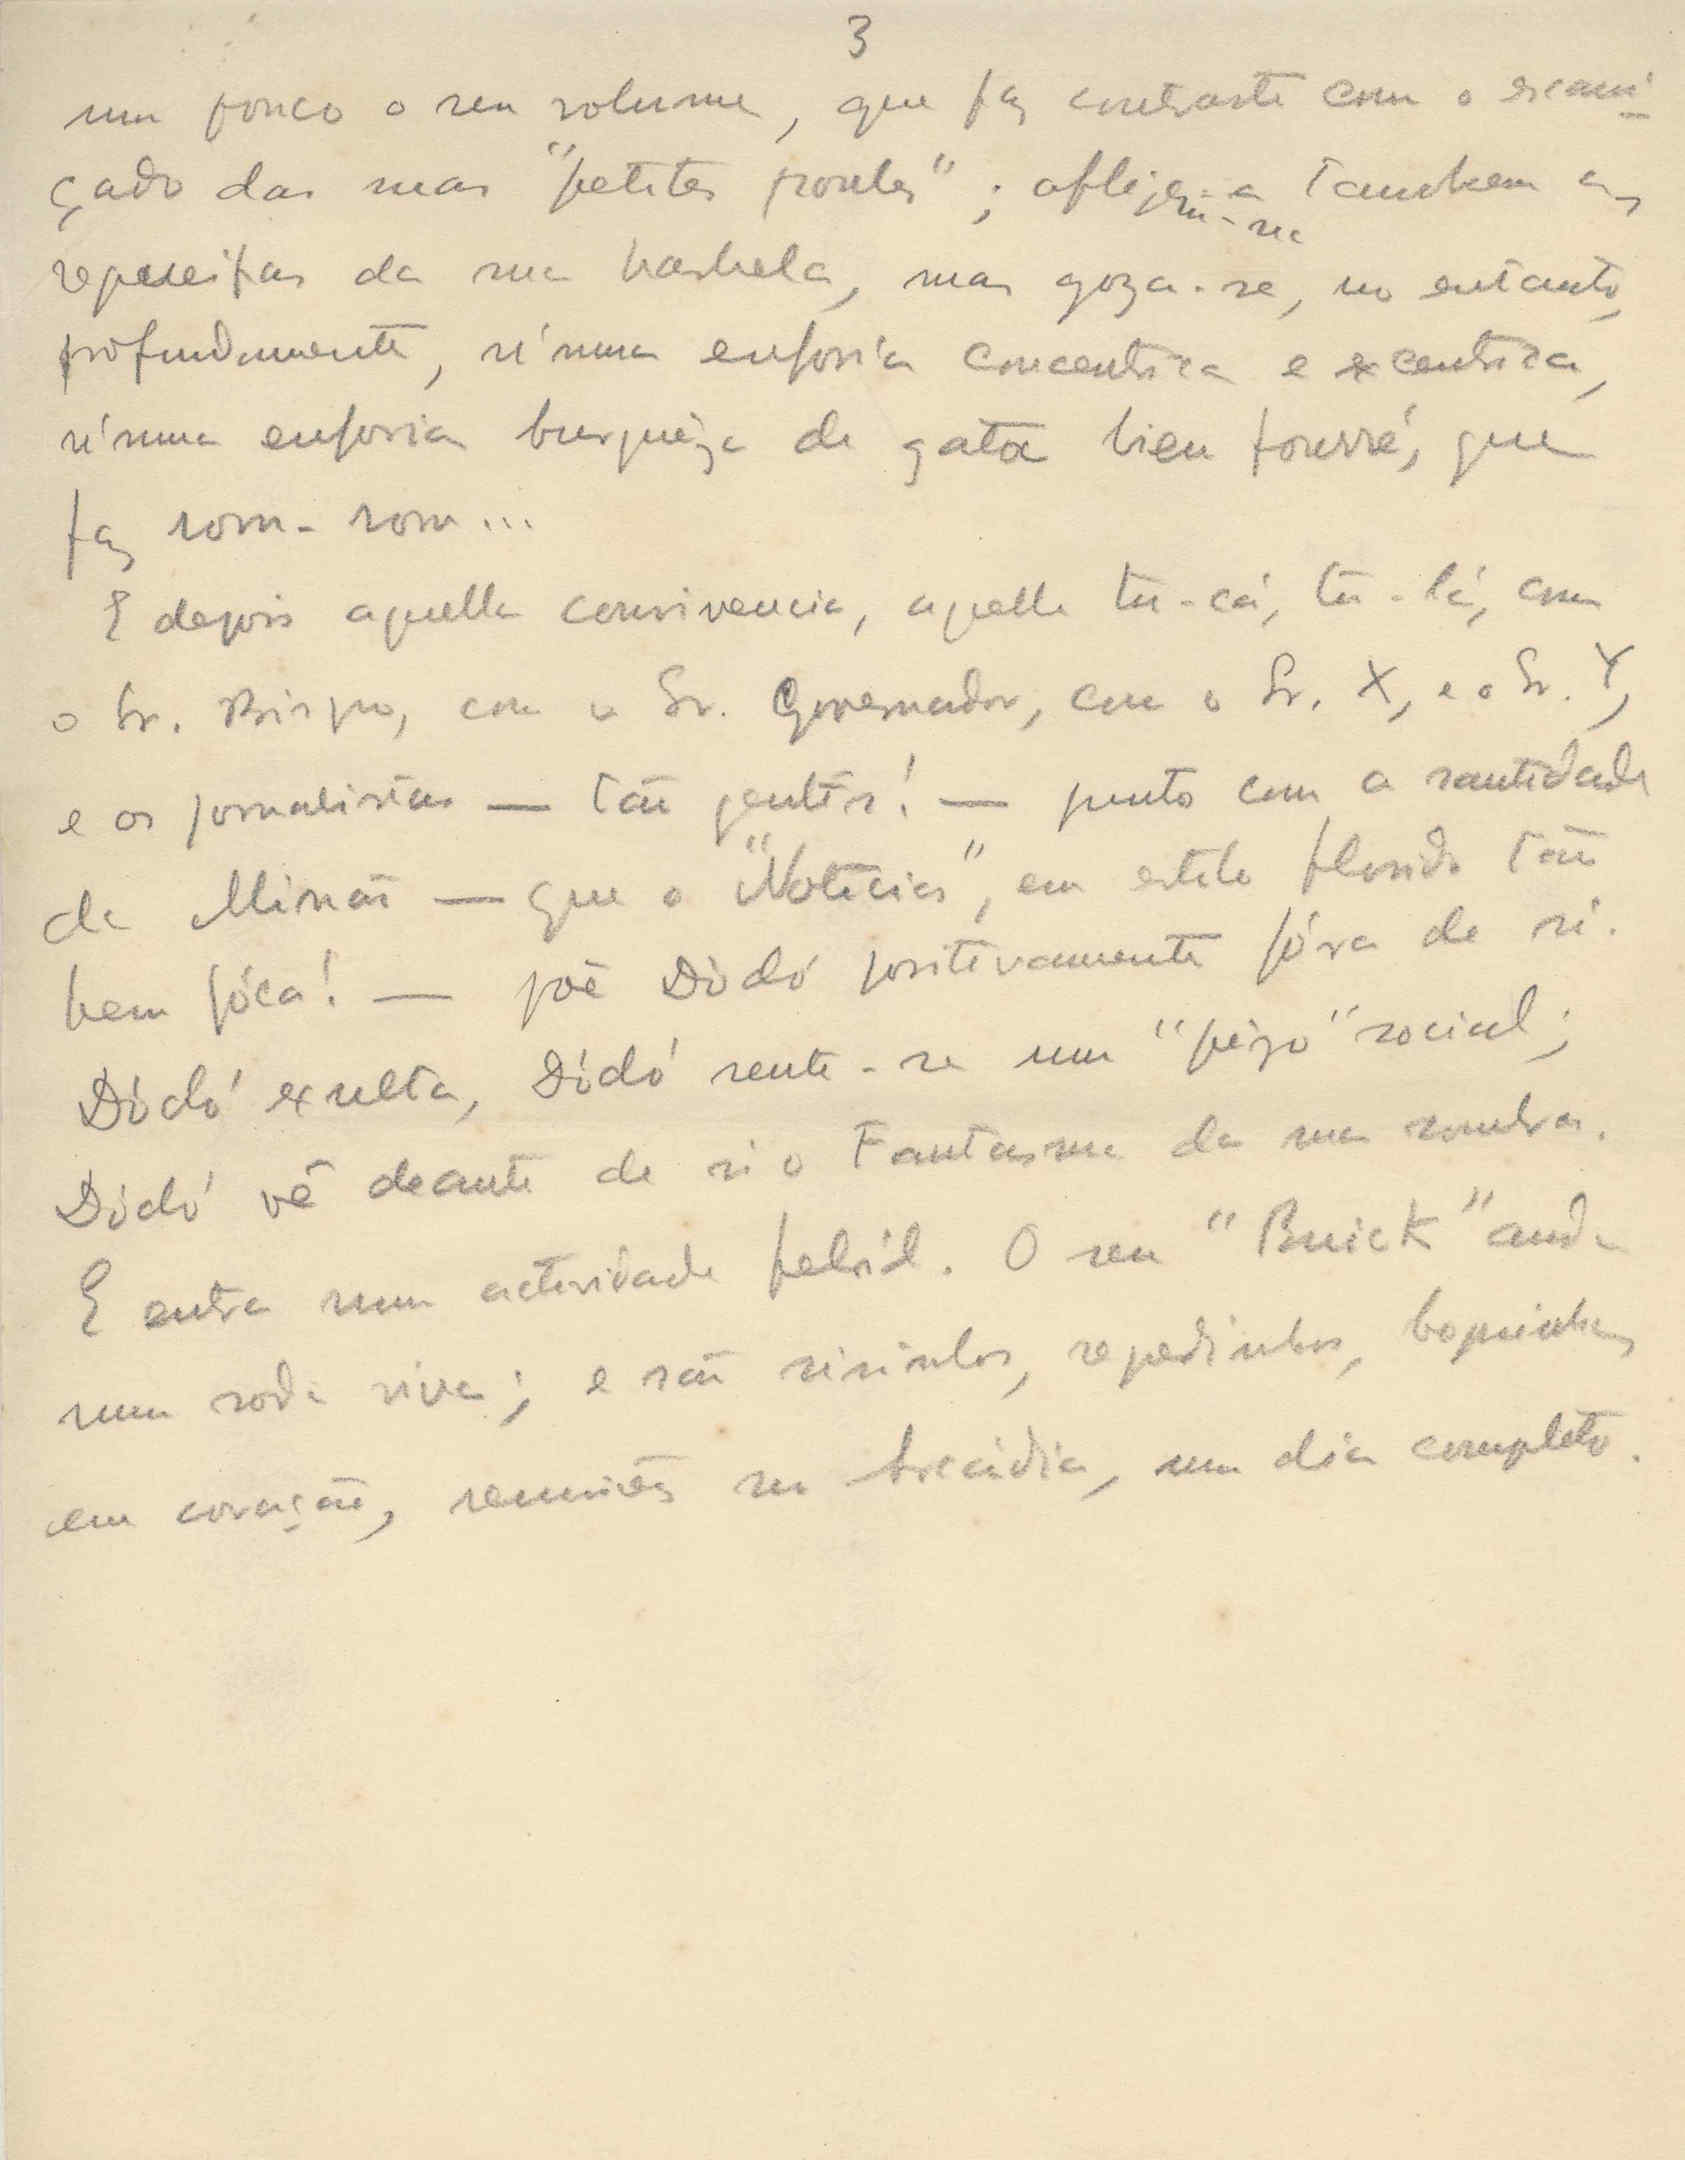 3
um pouco o seu volume, que faz contraste com o escani-
çado das suas "petites poules"; aflige-a tambem as
em-na
da sua barbela, mas goza-se, no entanto,
profundamente, n'uma euforia concentrica e excentrica,
n'uma euforia burguêza de gata bien fourré, que
faz rom-rom...
E depois aquella convivencia, aquelle tu-cá, tu-lá, com
o Sr. Bispo, com o Sr. Governador, com o Sr. X, e o Sr. Y,
e os jornalistas — tão gentis! — junto com a santidade
da Missão — que o "Noticias", em estilo florido tão
bem fóca! — põe Dódó positivamente fóra de si.
Dódó exulta, Dódó sente-se um "pêzo" social;
Dódó vê deante de si o Fantasma da sua sombra.
E entra num actividade febril. O seu "Buick" anda
num roda viva; e são risinhos, segredinhos, boquinhas
em coração, reuniões na Arcádia, um dia completo.